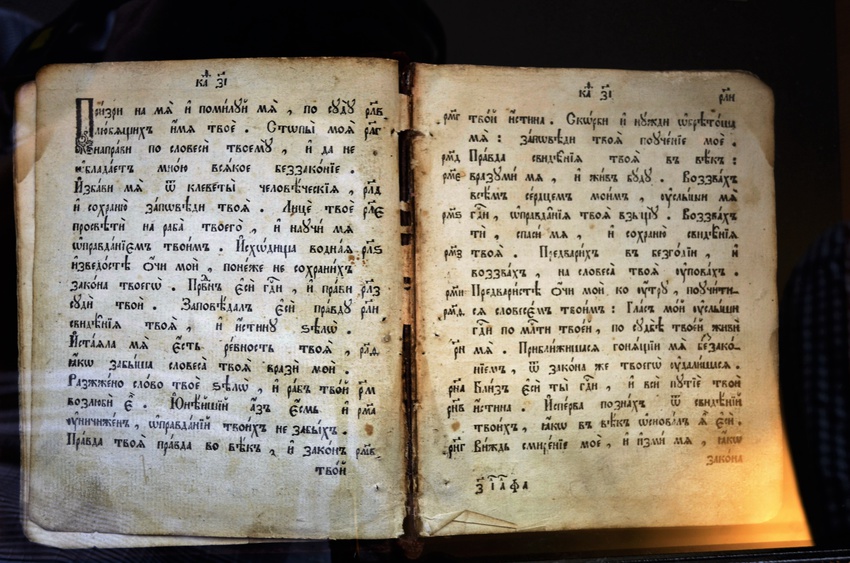 ка҃ зі҃
Призри на мѧ̀ и҆ помилꙋй мѧ̀ , по сꙋдꙋ̀ рлв
любѧщихъ и҆́мѧ твоѐ . Стѡпы̀ моѧ̀ рлг
направи по словесѝ твоемꙋ̀ , и҆ да не
ѡ҆бладаетъ мною всѧкое беззаконїе .
И҆збави мѧ̀ ѿ клеветы̀ человѣ́ческїѧ , рлд
и҆ сохраню̀ заповѣди твоѧ̀ . Лицѐ твоѐ рлє
просвѣтѝ на раба̀ твоего̀ , и҆ наꙋчи мѧ̀
ѡ҆правданїємъ твоимъ . И҆схѡдища воднаѧ рлѕ
и҆зведостѣ ѻ҆чи моѝ , понеже не сохранихъ
зако́на твоегѡ̀ . Првⷣнъ є҆сѝ гдⷭ҇и , и҆ правѝ рлз
сꙋдѝ твоѝ . Заповѣдалъ є҆сѝ правдꙋ рли
свидѣ́нїѧ твоѧ̀ , и҆ и҆́стинꙋ ѕѣлѡ̀ .
И҆стаѧла мѧ̀ є҆сть ревность твоѧ̀ , рлѳ
ꙗ҆́кѡ забы́ша словеса̀ твоѧ̀ вразѝ моѝ .
Разжено̀ сло́во твоѐ ѕѣлѡ̀ , и҆ рабъ твоѝ рм
возлюбѝ є҆̀ . Ю҆нѣйшїй а҆́зъ є҆́смь и҆ рма
ᲂу҆ничиженъ , ѡ҆правданїй твоихъ не забы́хъ .
Правда твоѧ̀ правда во вѣкъ , и҆ законъ рмв
твоѝ
ка҃ зі҃ рли
рмг твоѝ и҆́стина . Скѡрби и҆ нꙋжди ѡ҆брѣто́ша
мѧ̀ : заповѣди твоѧ̀ поꙋче́нїе моѐ .
рмд Правда свидѣ́нїѧ твоѧ̀ въ вѣкъ :
рмє вразꙋми мѧ̀ , и҆ живъ бꙋдꙋ . Воззвахъ
всѣмъ сердцемъ моимъ , ᲂу҆слыши мѧ̀
рмѕ гдⷭ҇и , ѡ҆правда́нїѧ твоѧ̀ взыщꙋ̀ . Воззвахъ
ти , спаси мѧ̀ , и҆ сохраню̀ свидѣ́нїѧ
рмз твоѧ̀ . Предварихъ въ безгодїи , и҆
воззвахъ , на словеса̀ твоѧ̀ ᲂу҆повахъ .
рми Предваристѣ ѻ҆чи моѝ ко ᲂу҆трꙋ , поꙋчити-
рмѳ сѧ словесѣмъ твоимъ : Гласъ моѝ ᲂу҆слыши
гдⷭ҇и по млⷭ҇ти твоеѝ , по сꙋдбѣ̀ твоеѝ живи
рн мѧ̀ . Приближишасѧ гонѧщїи мѧ̀ беззако-
нїемъ , ѿ зако́на же твоегѡ̀ ᲂу҆далишасѧ .
рна Близъ є҆сѝ ты̀ гдⷭ҇и , и҆ всѝ пꙋтїе твоѝ
рнв и҆́стина . И҆сперва познахъ ѿ свидѣ́нїй
твоихъ , ꙗ҆́кѡ въ вѣкъ ѡ҆снова́лъ ѧ҆̀ є҆сѝ .
рнг Виждь смире́нїе моѐ , и҆ и҆зми мѧ̀ , ꙗ҆́кѡ
зако́на